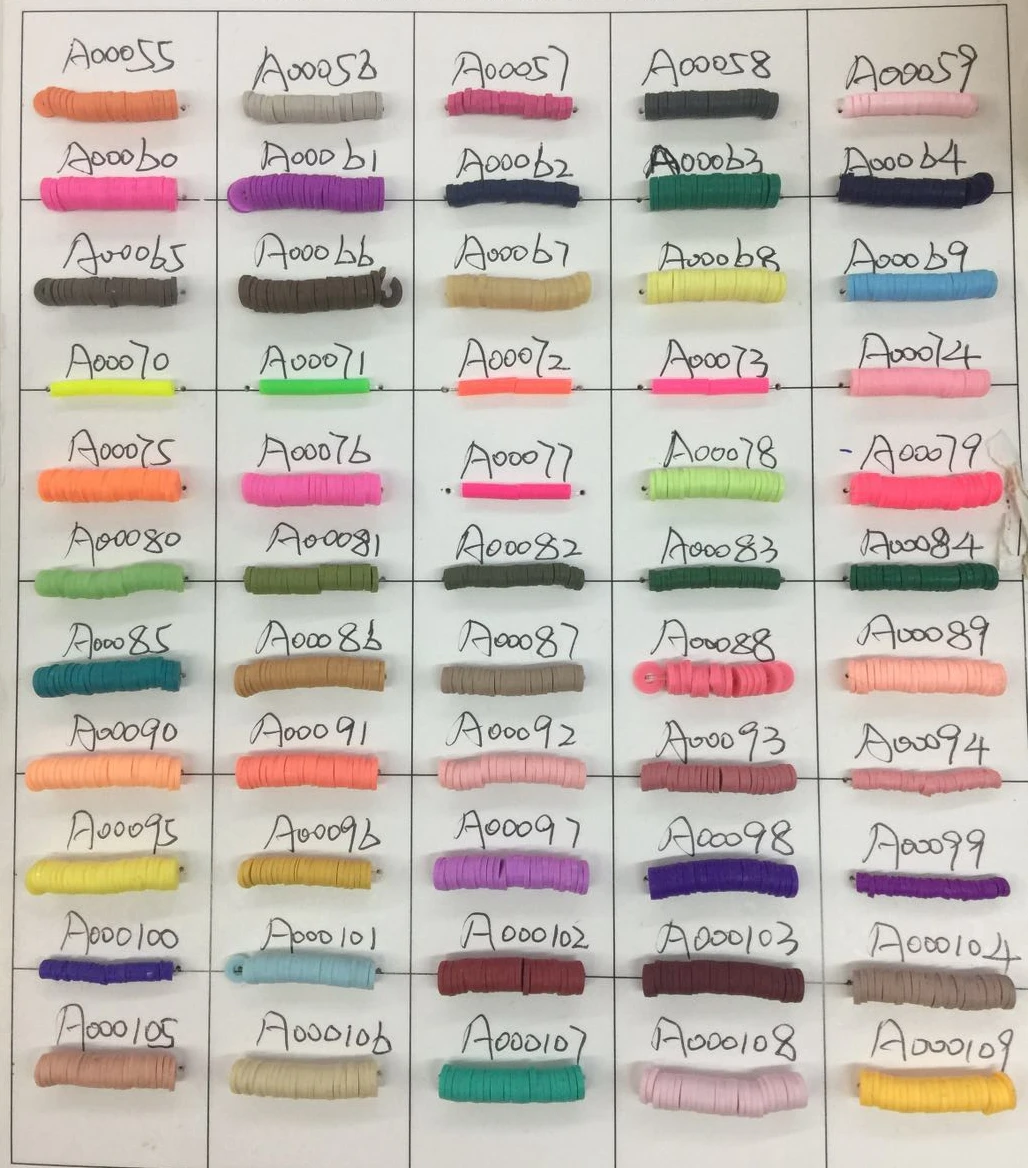 A00055 A00056 A00057 A00058 A00059
A00060 A00061 A00062 A00063 A00064
A00065 A00066 A00067 A00068 A00069
A00070 A00071 A00072 A00073 A00074
A00075 A00076 A00077 A00078 A00079
A00080 A00081 A00082 A00083 A00084
A00085 A00086 A00087 A00088 A00089
A00090 A00091 A00092 A00093 A00094
A00095 A00096 A00097 A00098 A00099
A000100 A000101 A000102 A000103 A000104
A000105 A000106 A000107 A000108 A000109